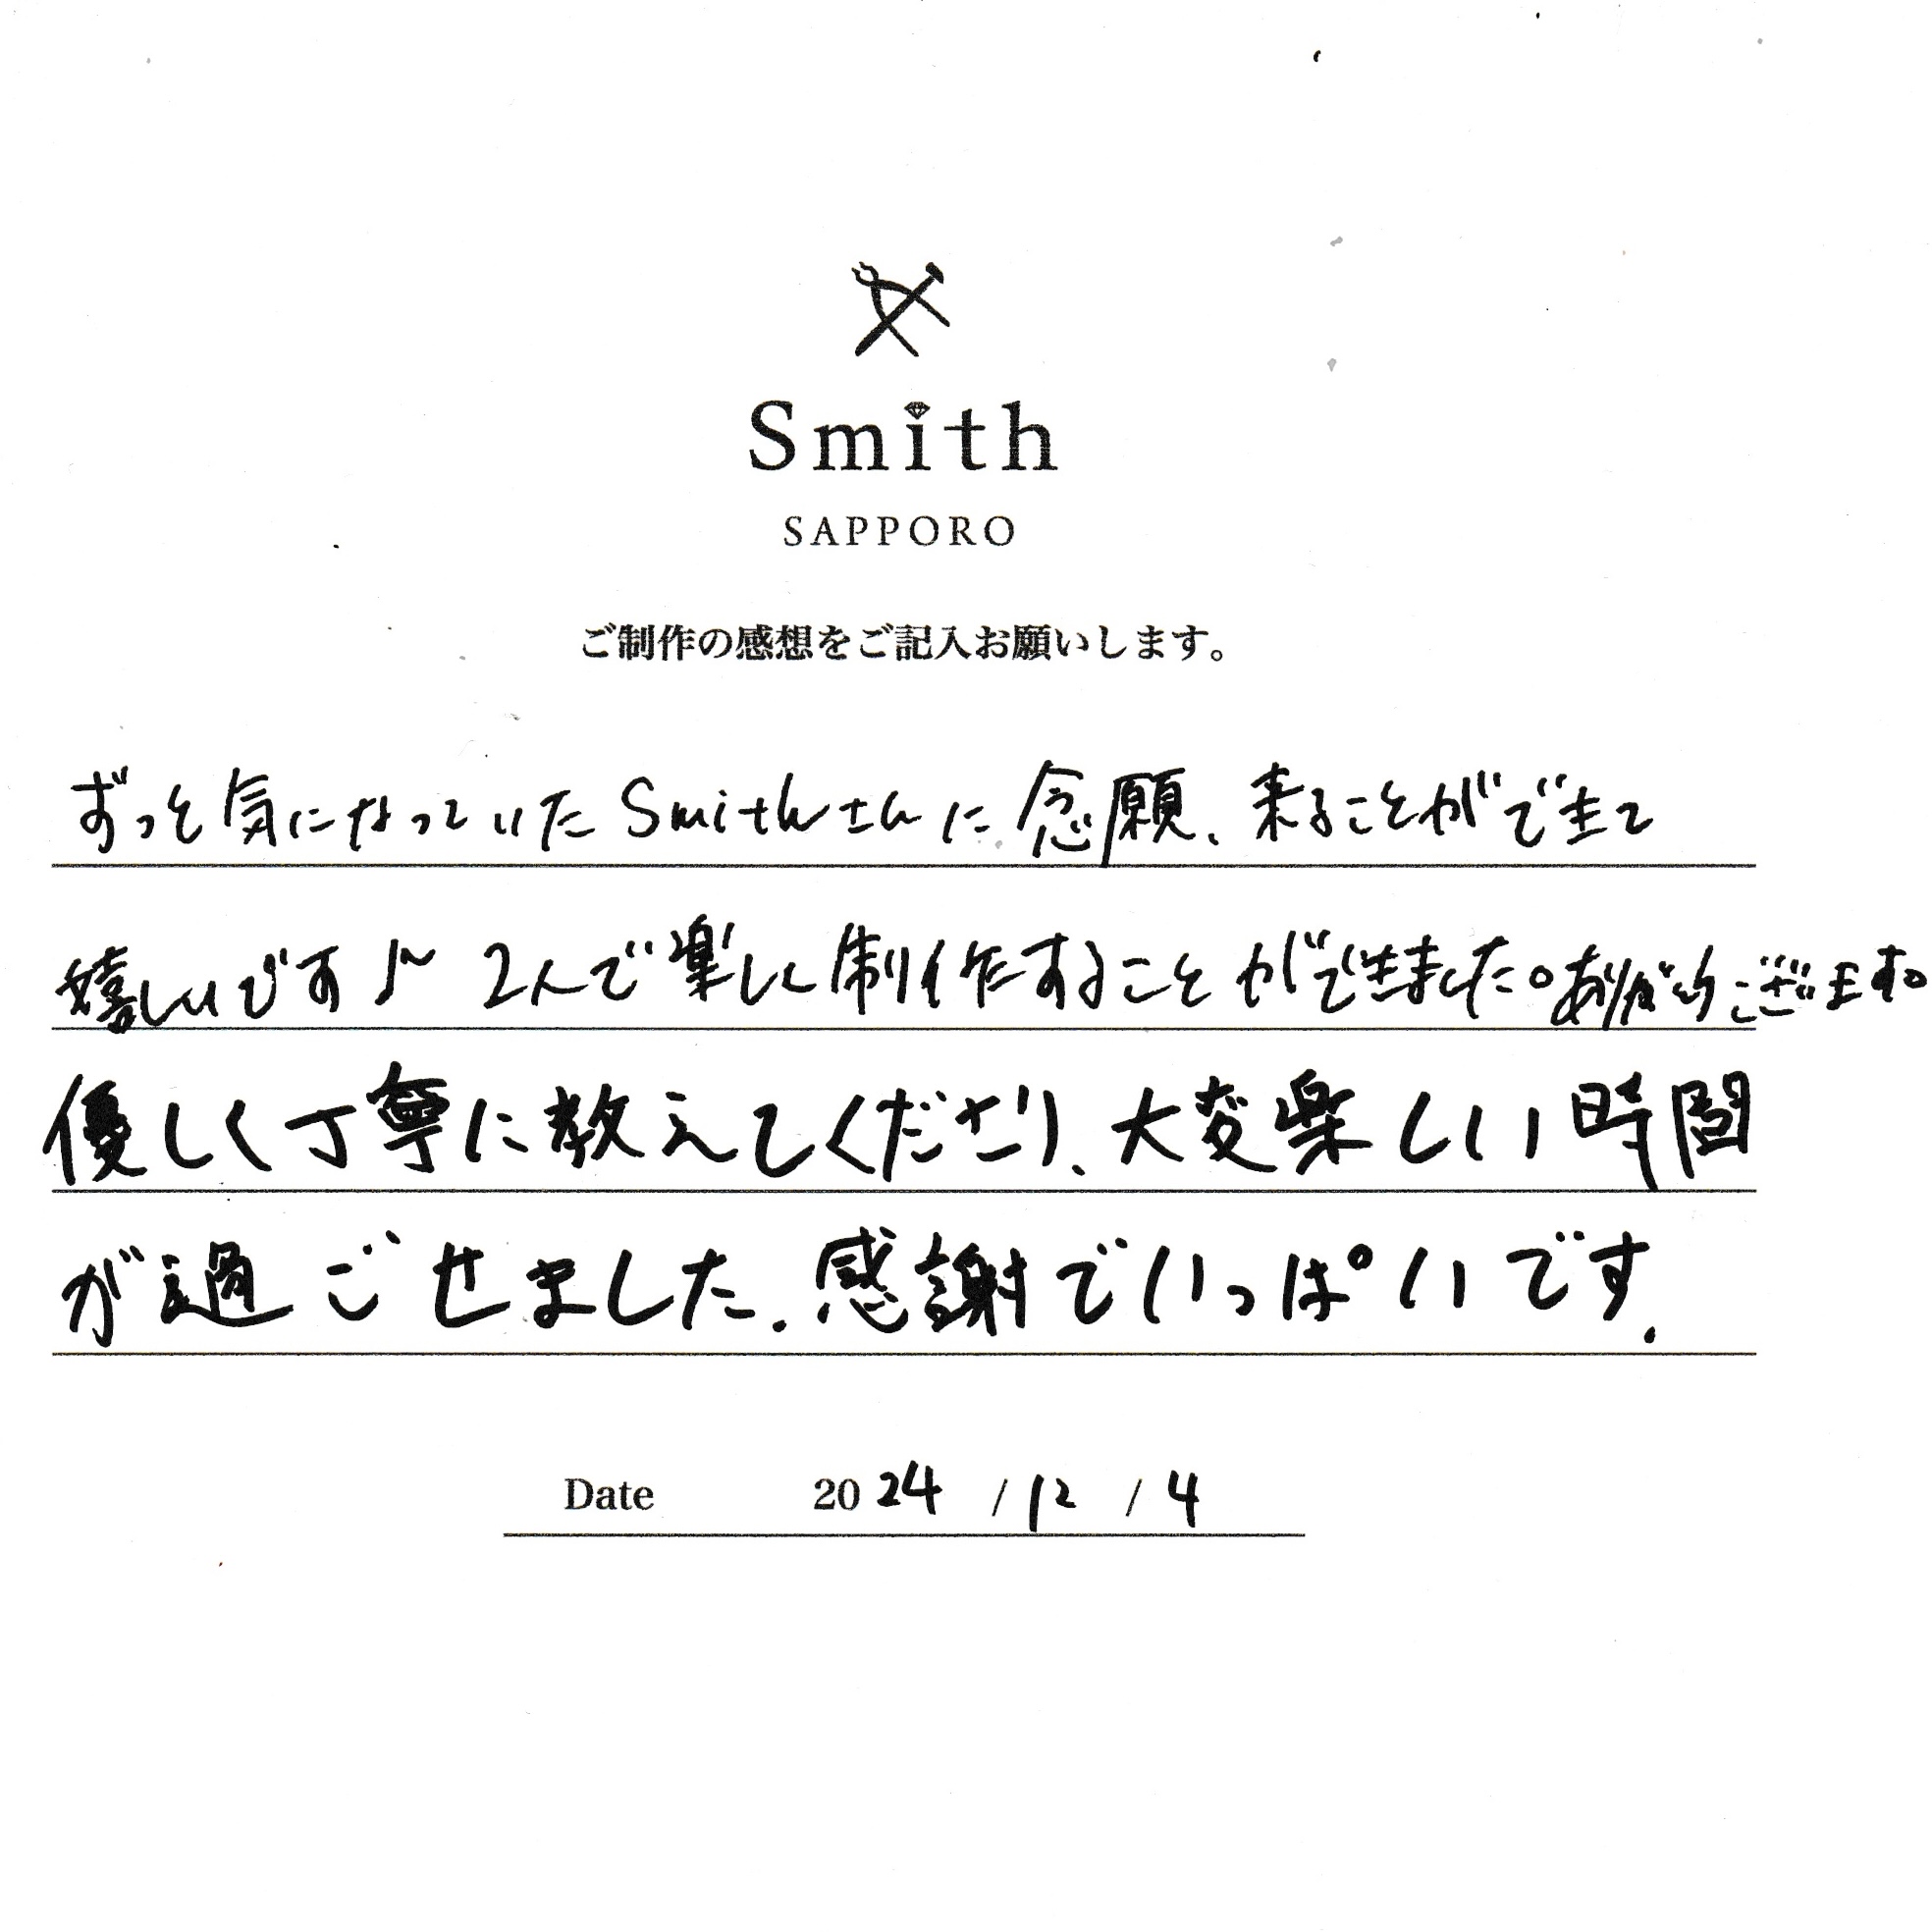 Smith
SAPPORO
ご制作の感想をご記入お願いします。
ずっと気になっていたSmithさんに念願、来ることができて
嬉しいです♪〜 2人で楽しく制作することができました。ありがとうございます。
優しく丁寧に教えてくださり、大変楽しい時間
が過ごせました。感謝でいっぱいです。
Date 2024 / 12 / 4